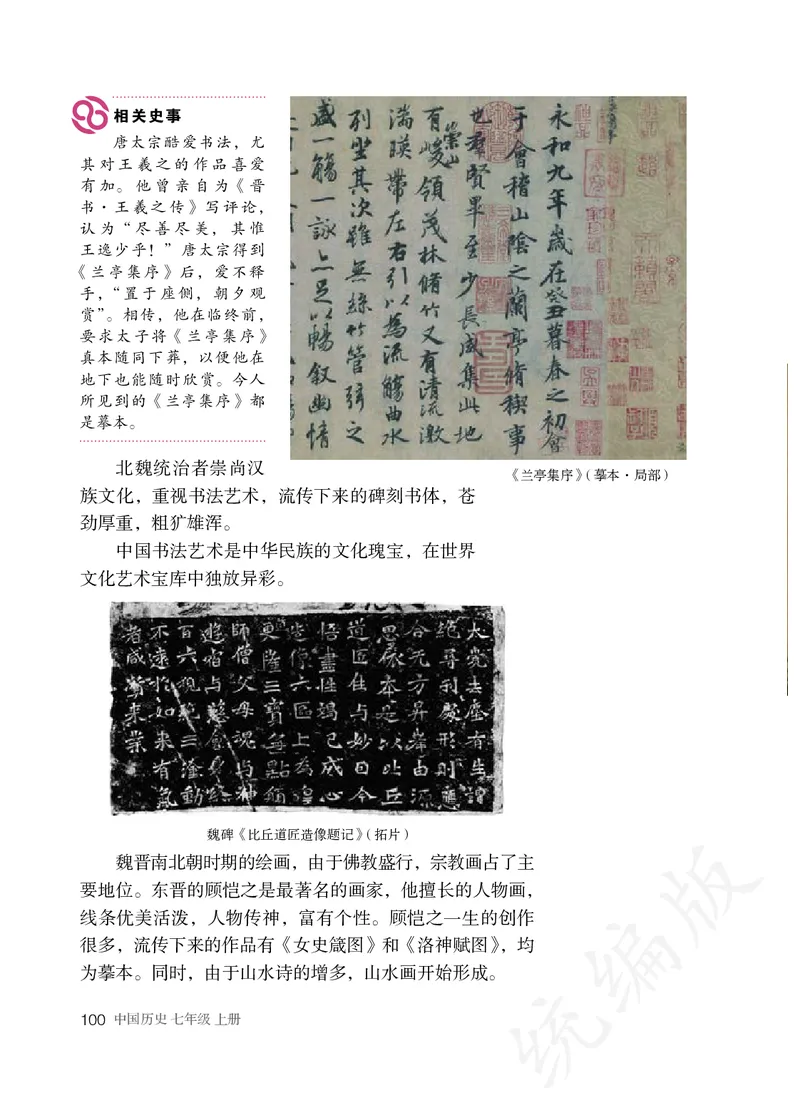 相关史事
唐太宗酷爱书法，尤
其对王羲之的作品喜爱
有加。他曾亲自为《晋
书·王羲之传》写评论，
认为“尽善尽美，其惟
王逸少乎！”唐太宗得到
《兰亭集序》后，爱不释
手，“置于座侧，朝夕观
赏”。相传，他在临终前，
要求太子将《兰亭集序》
真本随同下葬，以便他在
地下也能随时欣赏。今人
所见到的《兰亭集序》都
是摹本。
永和九年歲在癸丑暮春之初會
于會稽山陰之蘭亭脩禊事
也羣賢畢至少長咸集此地
有崇山峻領茂林脩竹又有清流激
湍暎帶左右引以為流觴曲水
列坐其次雖無絲竹管弦之
盛一觴一詠亦足以暢敘幽情
《兰亭集序》（摹本·局部）
北魏统治者崇尚汉
族文化，重视书法艺术，流传下来的碑刻书体，苍
劲厚重，粗犷雄浑。
中国书法艺术是中华民族的文化瑰宝，在世界
文化艺术宝库中独放异彩。
大覺去塵有生
形則應
合无方昇峰由源
思依本是以比丘
道匠住与妙因今
悟盡性竭己成心
造像六區上為
更隆三寶
師僧父母魂与神
遊宿与慈會身終
百六視絕三塗動
不遠於如来有氣
者咸資来業
魏碑《比丘道匠造像题记》（拓片）
魏晋南北朝时期的绘画，由于佛教盛行，宗教画占了主
要地位。东晋的顾恺之是最著名的画家，他擅长的人物画，
线条优美活泼，人物传神，富有个性。顾恺之一生的创作
很多，流传下来的作品有《女史箴图》和《洛神赋图》，均
为摹本。同时，由于山水诗的增多，山水画开始形成。
100 中国历史 七年级 上册
统编版